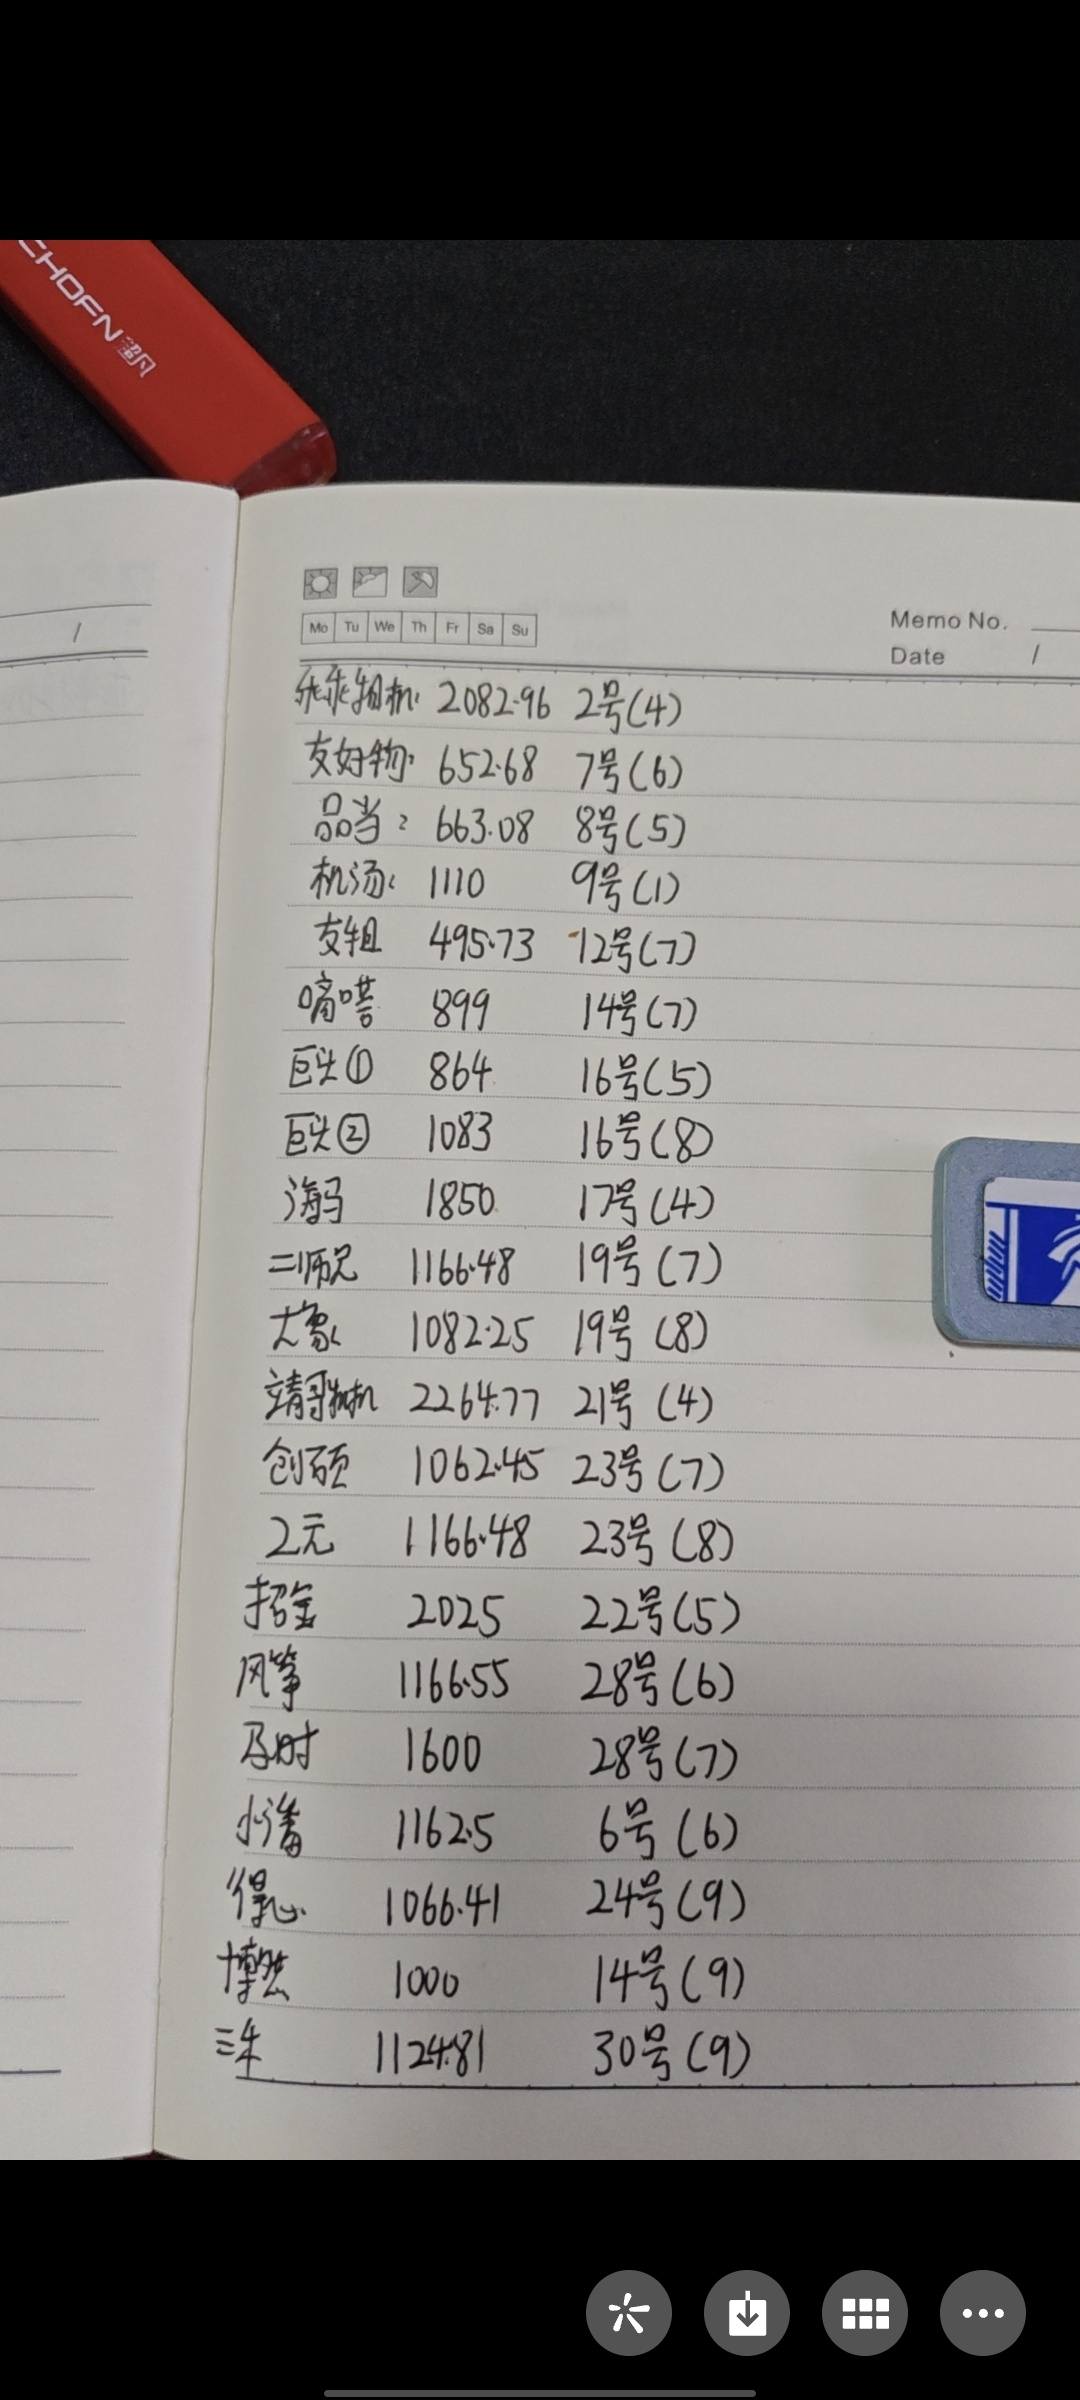 CHOFN 超凡
Mo Tu We Th Fr Sa Su
Memo No.
Date /
/
乖乖租机: 2082.96 2号(4)
友好物: 652.68 7号(6)
品当: 663.08 8号(5)
机汤: 1110 9号(1)
支租 495.73 12号(7)
嘀嗒 899 14号(7)
巨头① 864 16号(5)
巨头② 1083 16号(8)
海马 1850 17号(4)
二师兄 1166.48 19号(7)
大象 1082.25 19号(8)
靖哥租机 2264.77 21号(4)
创硕 1062.45 23号(7)
2元 1166.48 23号(8)
招金 2025 22号(5)
风筝 1166.55 28号(6)
及时 1600 28号(7)
1162.5 6号(6)
得心 1066.41 24号(9)
博然 1000 14号(9)
1124.81 30号(9)